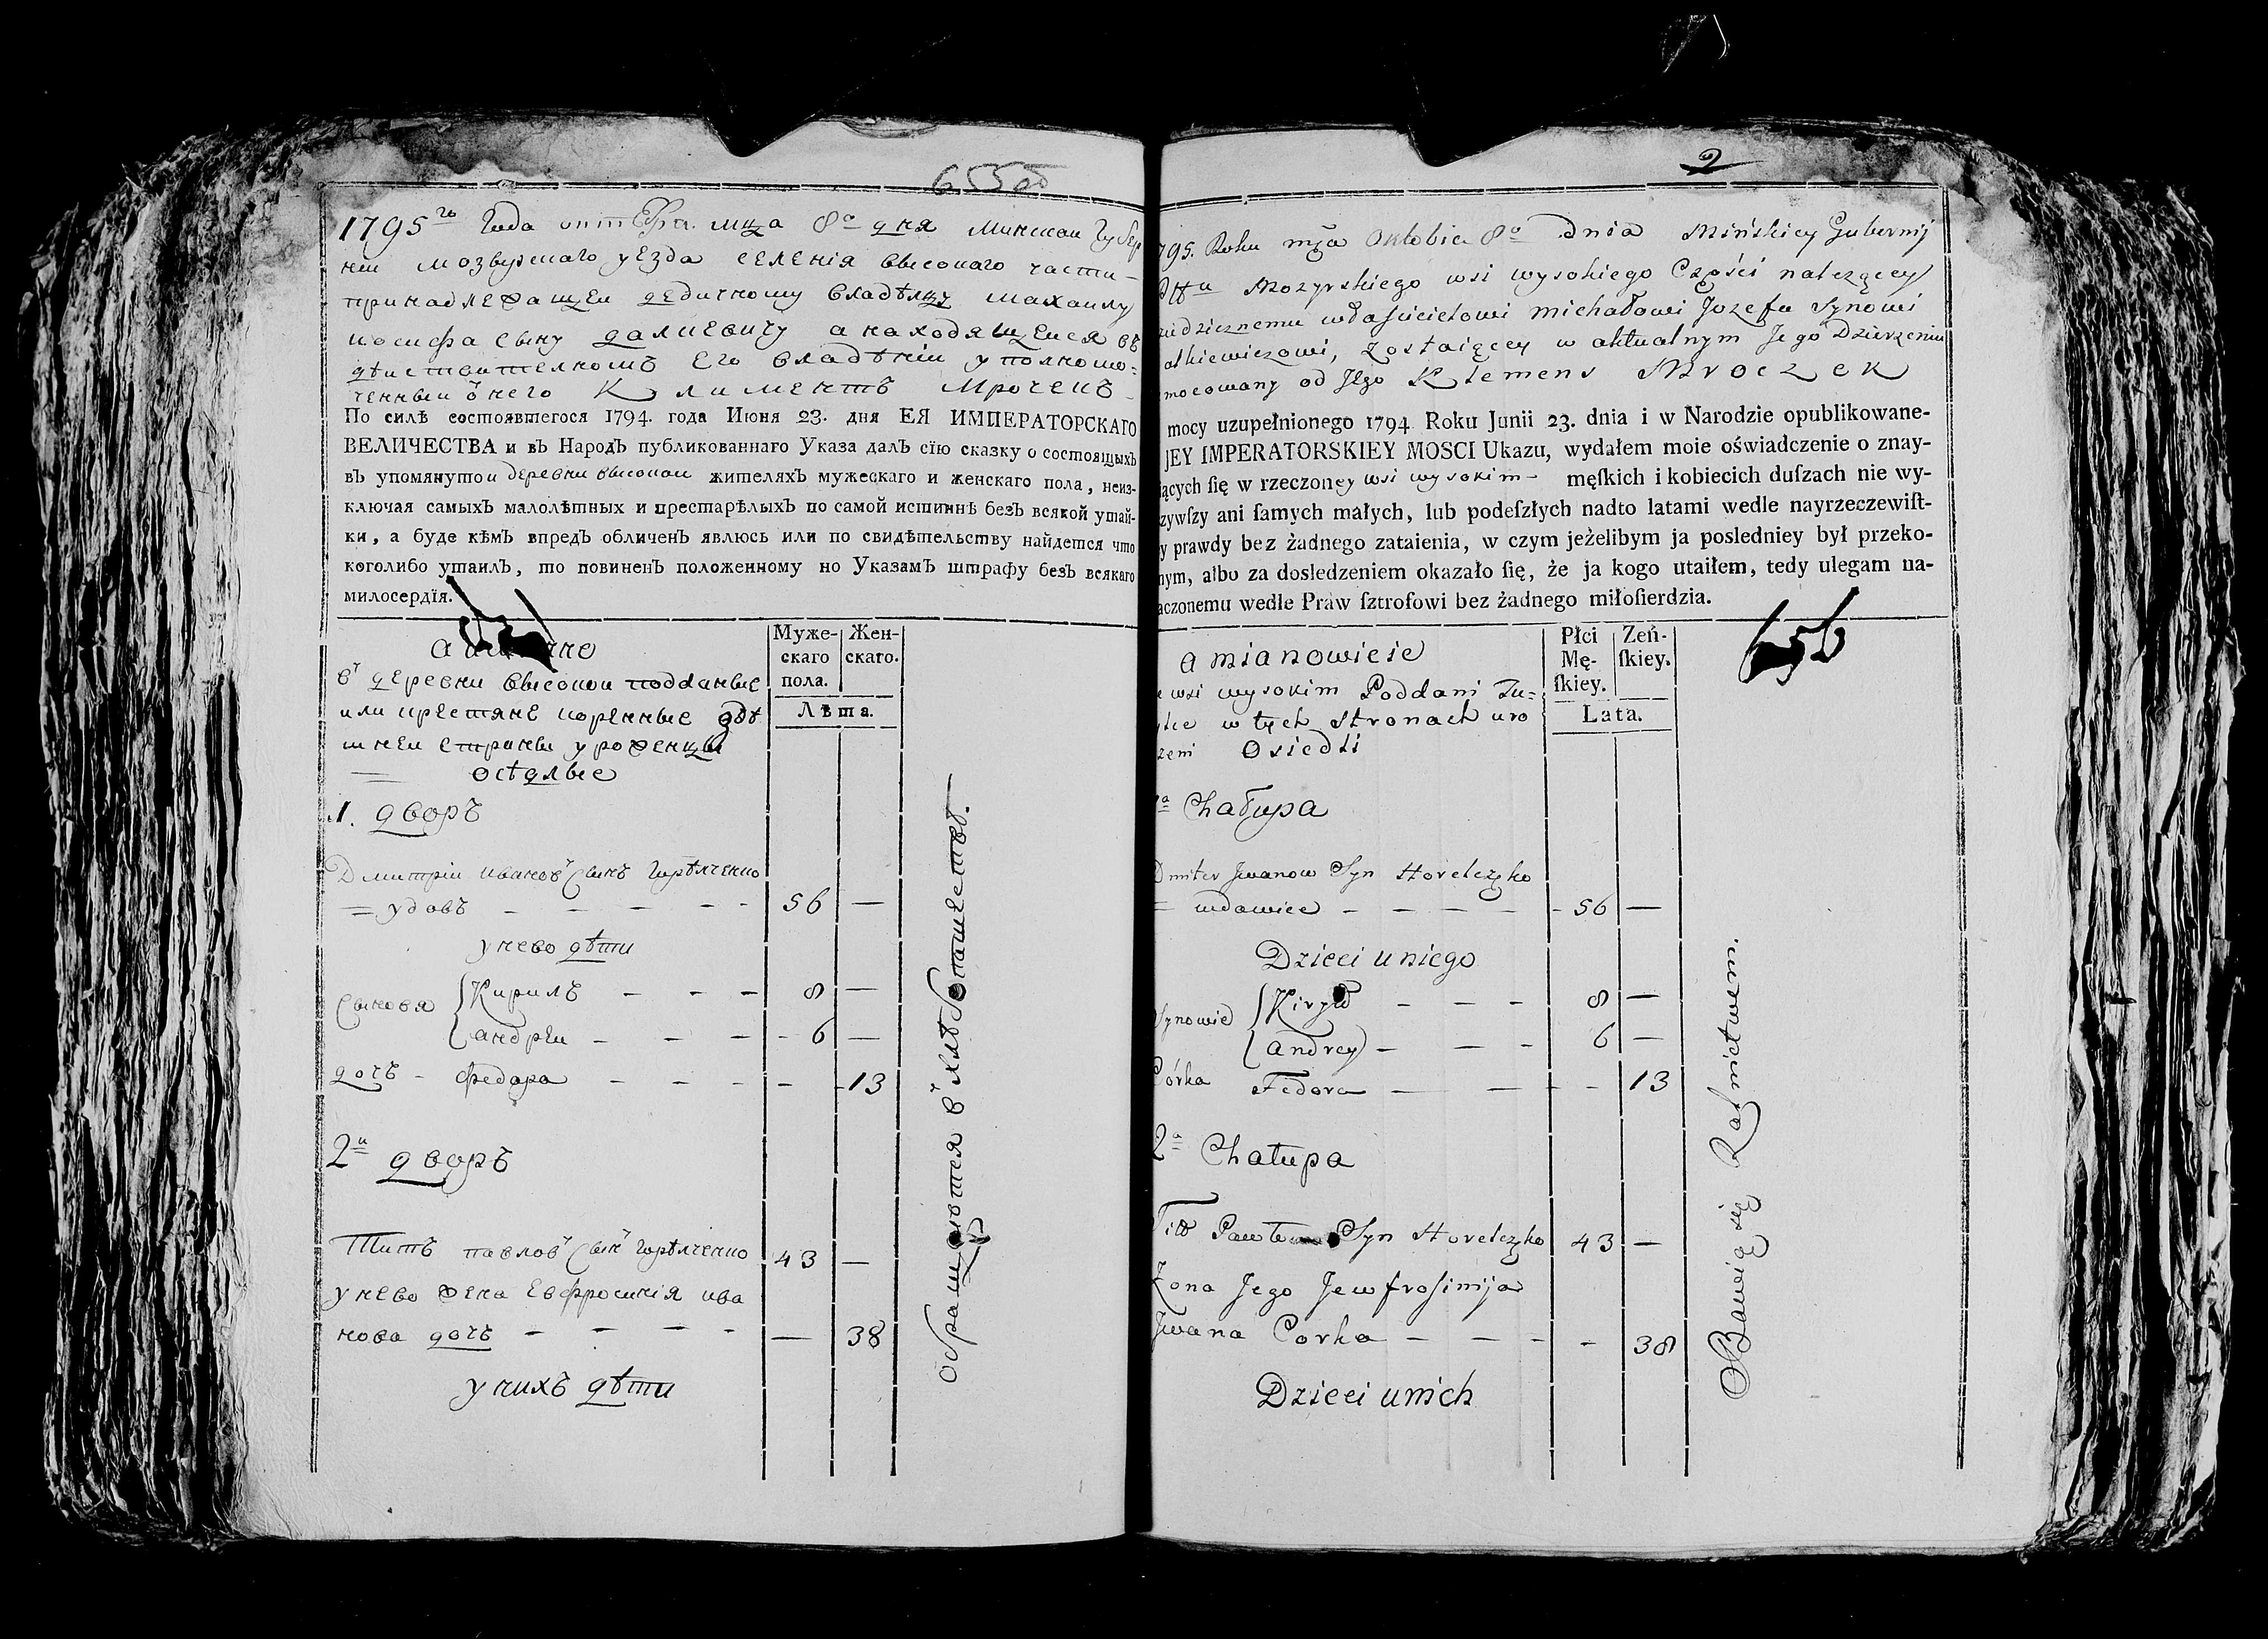 655об
1795го Года октебра мца 8о дня Минскои Губер
нии мозырскаго уезда селенія высокаго части-
принадлежащеи дедичному владѣлцу михаилу
иосифа сыну далиевичу а находящеися въ
дѣиствителномъ Его владѣніи уполномо=
ченныи ѿнего Климентъ Мрочекъ
По силѣ состоявшегося 1794. года Июня 23. дня ЕЯ ИМПЕРАТОРСКАГО
ВЕЛИЧЕСТВА и въ НародЪ публикованнаго Указа далЪ сїю сказку о состоящыхЪ
въ упомянутои деревни высокои жителяхЪ мужескаго и женскаго пола, неиз-
ключая самыхЪ малолѣтныхъ и престарѣлыхЪ по самой истиннѣ безЪ всякой утай-
ки, а буде кѣмЪ впредЪ обличенЪ явлюсь или по свидѣтельству найдется что
коголибо утаилЪ, то повиненЪ положенному по УказамЪ штрафу безЪ всякаго
милосердїя.
Муже-
скаго
пола.
Жен-
скаго.
Лѣта.
въ деревни высокои подданые
или крестяне коренные здѣ
шнеи страны уроженцы
осѣдлые
1. дворъ
Дмитріи ивановъ сынъ Горѣлченко
= удовъ - - - - - 56 —
унево дѣти
Сыновя Кирилъ - - - 8 —
андреи - - - - 6 —
дочь - федора - - - - 13
2и дворъ
Титъ павловъ сынъ горѣлченко 43 —
унево жена Евфросинія ива
нова дочь - - - - — 38
унихъ дѣти
обращаются въ хлѣбопашествѣ.
2
795. Roku mca Oktobra 8o dnia Mińskiey Gubernij
Pttu Mozyrskiego wsi wysokiego Części należącey
dziedzicznemu właścicielowi michałowi Jozefa Synowi
alkiewiczowi, zostaiącey w aktualnym Jego Dzierzeniu
mocowany od Jego Klemens Mroczek
mocy uzupełnionego 1794 Roku Junii 23. dnia i w Narodzie opublikowane-
JEY IMPERATORSKIEY MOSCI Ukazu, wydałem moie oświadczenie o znay-
iących ſię w rzeczoney wsi wysokim - męſkich i kobiecich duſzach nie wy-
zywſzy ani ſamych małych, lub podeſzłych nadto latami wedle nayrzeczewiſt-
y prawdy bez żadnego zataienia, w czym jeżelibym ja posledniey był przeko-
nym, albo za dosledzeniem okazało ſię, że ja kogo utaiłem, tedy ulegam na-
aczonemu wedle Praw ſztrofowi bez żadnego miłoſierdzia.
a mianowicie
Płci
Mę-
ſkiey.
Zeń-
ſkiey.
Lata.
656
e wsi wysokim Poddani Tu=
w tych stronach uro
zeni Osiedli
1a Chałupa
Dmiter Jwanow Syn Horelczko
= wdowiec - - - - - 56 —
Dzieci u niego
Synowie Kirył - - - 8 —
andrey - - - 6 —
Córka Fedora — — - - 13
2a Chałupa
Tit Pawła Syn Horelczko 43 —
Zona Jego Jewfroſinija
Jwana Corka - - - - 38
Dzieci u nich
Bawią się Rolnictwem.